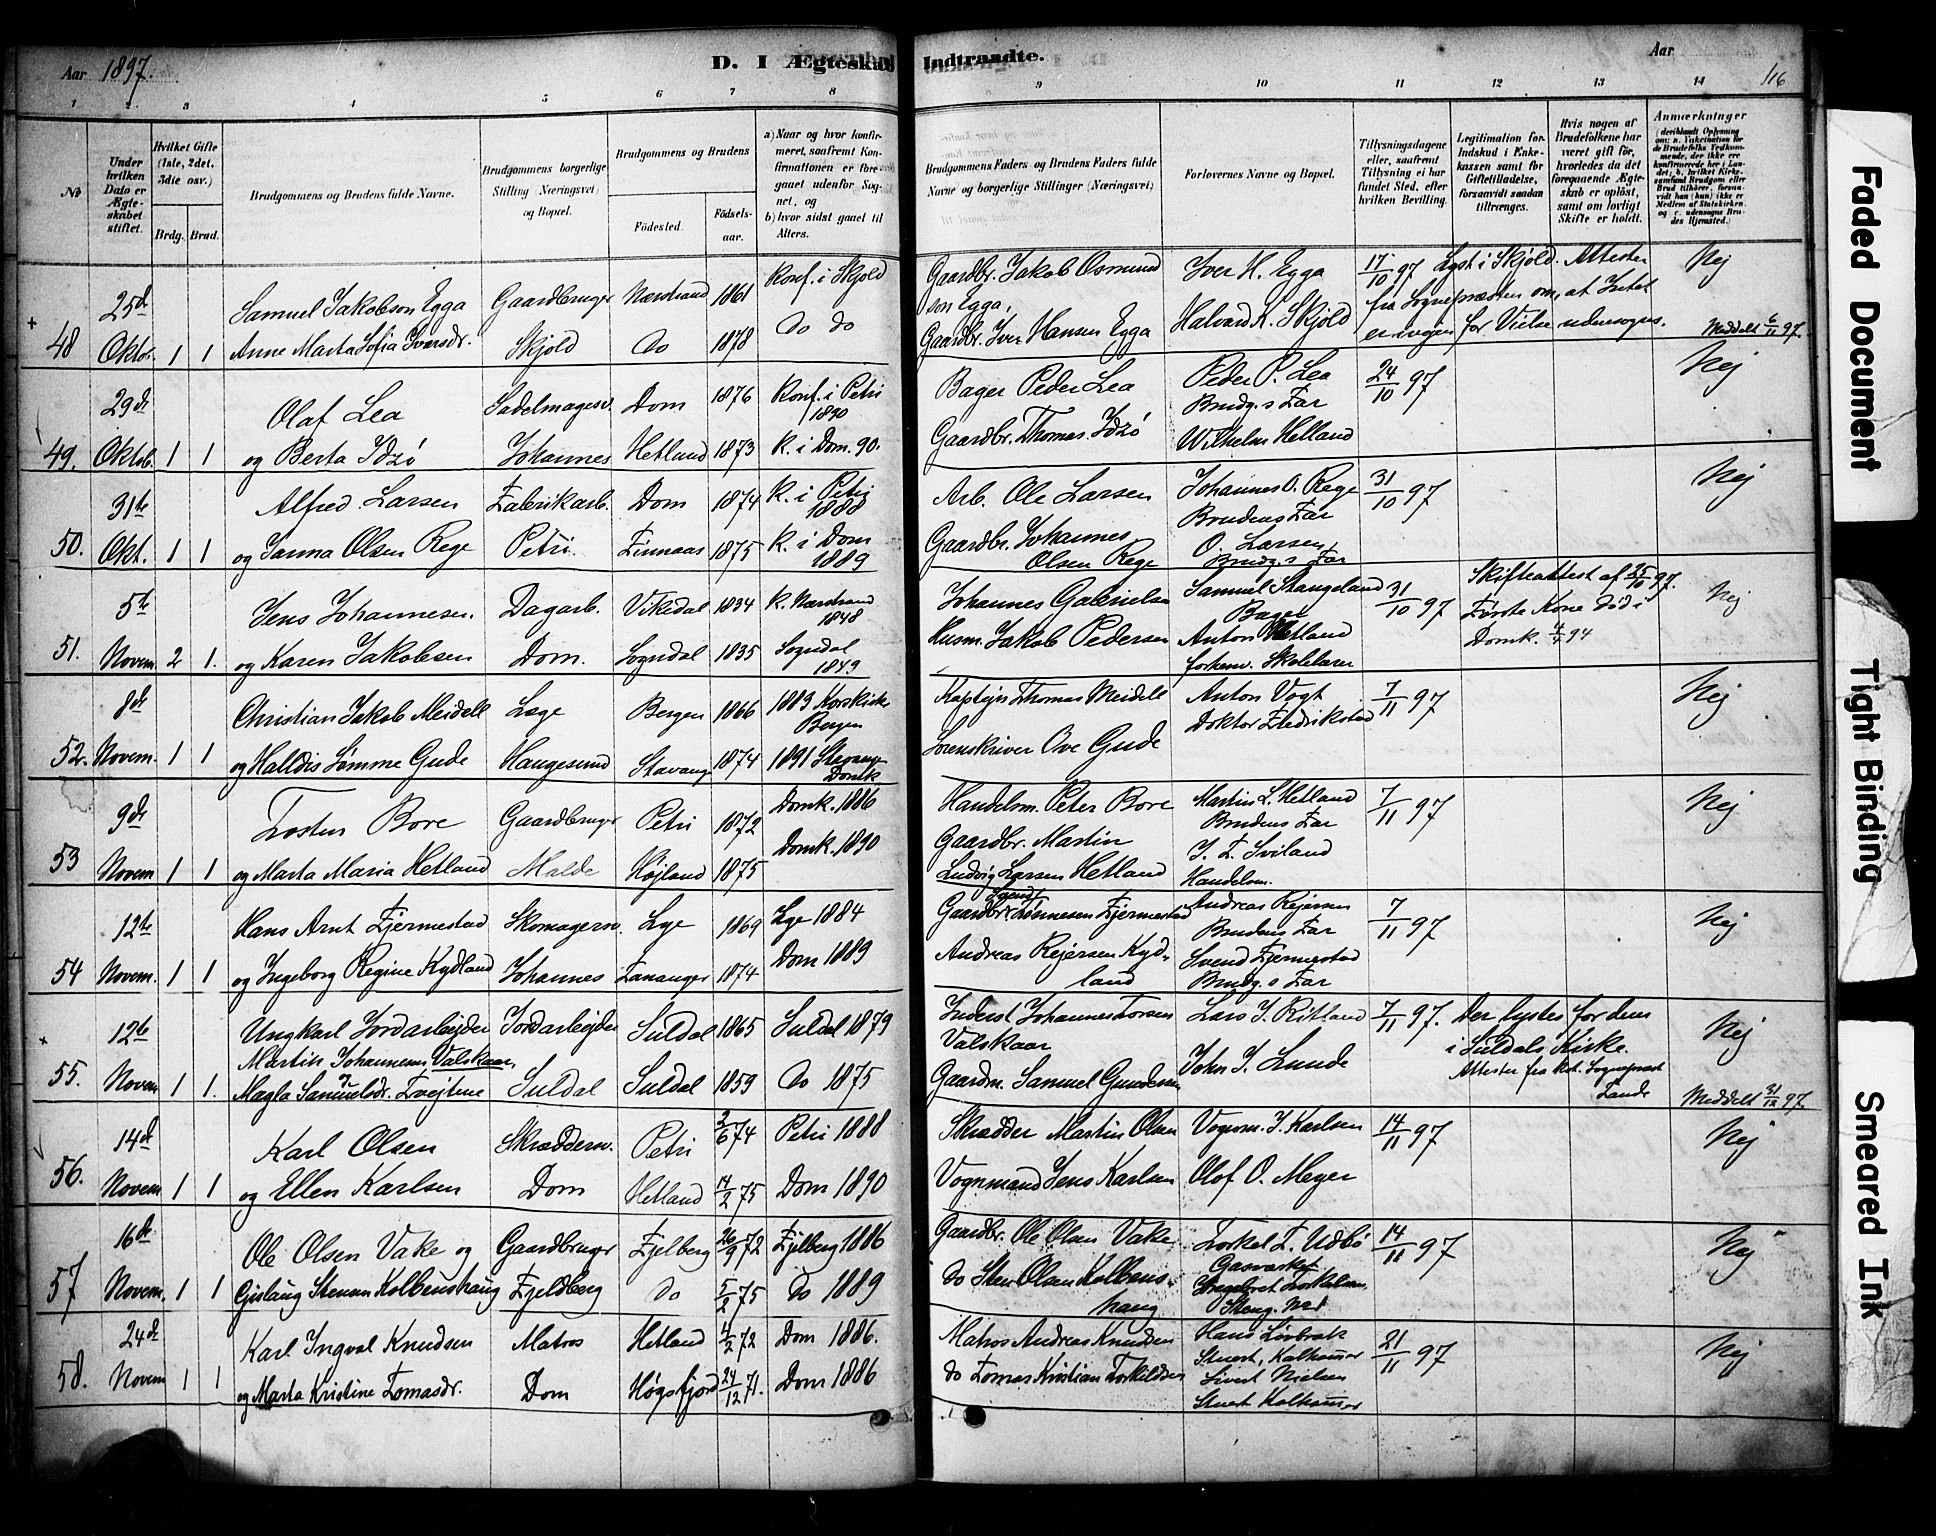 Aar 1897.
D. I Ægteskab Indtraadte.
Aar
116
1 2 3 4 5 6 7 8 9 10 11 12 13 14
No
Under hvilken Dato er Ægteskabet stiftet.
Hvilket Gifte (1ste, 2det, 3die osv.)
Brdg. Brud.
Brudgommens og Brudens fulde Navne.
Brudgommens borgerlige Stilling (Næringsvei) og Bopæl.
Brudgommens og Brudens
Fødested.
Fødselsaar.
a) Naar og hvor konfirmeret, saafremt Konfirmationen er foregaaet udenfor Sognet, og
b) hvor sidst gaaet til Alters.
Brudgommens Faders og Brudens Faders fulde Navne og borgerlige Stillinger (Næringsvei)
Forlovernes Navne og Bopæl.
Tillysningsdagene eller, saafremt Tillysning ei har fundet Sted, efter hvilken Bevilling.
Legitimation for Indskud i Enkekassen samt for Giftetilladelse, forsaavidt saadan tiltrænges.
Hvis nogen af Brudefolkene har været gift før, hvorledes da det foregaaende Ægteskab er opløst, samt om lovligt Skifte er holdt.
Anmærkninger
48 25d Oktbr. 1 1
Samuel Jakobson Egga
Anne Marta Sofia Iversdr.
Gaardbruger
Skjold
Nærstrand 1861
Do 1878
Konf. i Skjold
do do
Gaardbr. Jakob Osmundson Egga,
Gaardbr. Iver Hansen Egga
Iver H. Egga
Halvard K. Skjold
17/10 97
Lyst i Skjold. Attester
fra Sognepræsten om, at Intet
er ivejen for Vielse udensogns.
Nej
Meddelt 6/11 97.
49. 29de Oktob. 1 1
Olaf Lea
og Berta Idzö
Sadelmagersv.
Johannes
Dom 1876
Hetland 1873
Konf. i Petri 1890
K. i Dom. 90.
Bager Peder Lea
Gaardbr. Thomas Idzö
Peder P. Lea
Brudg.s Far
Wilhelm Helland
24/10 97
Nej
50. 31te Okt. 1 1
Alfred Larsen
og Janna Olsen Rege
Fabrikarb.
Petri.
Dom 1874
Finnaas 1875
K. i Petri 1888
K. i Dom 1889
Arb. Ole Larsen
Gaardbr. Johannes
Olsen Rege
Johannes O. Rege
Brudens Far
O. Larsen
Brudg.s Far
31/10 97
Nej
51. 5te Novem 2 1.
Jens Johannesen
og Karen Jakobsen
Dagarb.
Dom.
Vikedal 1834
Sogndal 1835
K. Nærstrand 1848
Sogndal 1849
Johannes Gabrielsen
Husm. Jakob Pedersen
Samuel Stangeland
Bager
Anton Hetland
forhenv. Skolelærer
31/10 97
Skifteattest af 25/10 97.
Første Kone död i
Domk. 4/4 94
Nej
52. 8de Novem. 1 1
Christian Jakob Meidell
og Halldis Sømme Gude
Læge
Haugesund
Bergen 1866
Stavanger 1874
1883 Korskirke Bergen
1891 Stavanger Domk
Kaptejn Thomas Meidell
Sorenskriver Ove Gude
Anton Vogt
Doktor Fredrikstad
7/11 97
Nej
53 9de Novem 1 1
Tosten Bore
og Marta Maria Hetland
Gaardbruger
Malde
Petri 1872
Højland 1875
Domk. 1886
Domk. 1890
Handelsm. Peter Bore
Gaardbr. Martin
Ludvig Larsen Hetland
Martin L. Hetland
Brudens Far
J. T. Sviland
Handelsm.
7/11 97
Nej
54 12te Novem. 1 1
Hans Arnt Fjermestad
og Ingeborg Regine Kydland
Skomagersv.
Johannes
Lye 1869
Tananger 1874
Lye 1884
Dom 1889
Gaardbr. Svend Tönnesen Fjermestad
Andreas Rejersen Kydland
Andreas Rejersen
Brudens Far
Svend Fjermestad
Brudg.s Far
7/11 97
Nej
55. 12te Novem 1 1.
Ungkarl Jordarbejder
Martin Johannesen Valskaar,
Magla Samuelsdr. Tvejtene
Jordarbejder
Suldal
Suldal 1865
Suldal 1859
Suldal 1879
Do 1875
Inderst Johannes Torsen
Valskaar
Gaardm. Samuel Gundersen
Lars J. Ritland
John J. Lunde
7/11 97.
Der lystes for dem
i Suldals Kirke.
Attester fra kst. Sognepræst
Lande
Nej
Meddelt 31/12 97.
56. 14de Novem 1 1
Karl Olsen
og Ellen Karlsen
Skræddersv.
Dom
Petri 3/6 74
Hetland 14/2 75
Petri 1888
Dom 1890
Skrædder Martin Olsen
Vognmand Jens Karlsen
Vognm. J. Karlsen
Olof O. Meyer
14/11 97
Nej
57 16de Novem. 1 1
Ole Olsen Vake og
Gislaug Stensen Kolbenshaug
Gaardbruger
Fjeldberg
Fjelberg 26/9 72
do 5/2 75
Fjelberg 1886
do 1889
Gaardbr. Ole Olsen Vake
do Sten Olsen Kolbenshaug
Torkel T. Udbö
Gasværket
14/11 97
Nej
58. 24de Novem 1 1
Karl Ingval Knudsen
og Marta Kristine Tomasdr.
Matros
Dom
Hetland 4/2 72
Høgsfjord 24/12 71.
Dom 1886.
Dom 1886
Matros Andreas Knudsen
do Tomas Kristian Torkildsen
Hans Livbrak
Stuert, Kolhammer
Sivert Nielsen
Stuert Kolhammer
21/11 97
Nej
Faded Document
Tight Binding
Smeared Ink